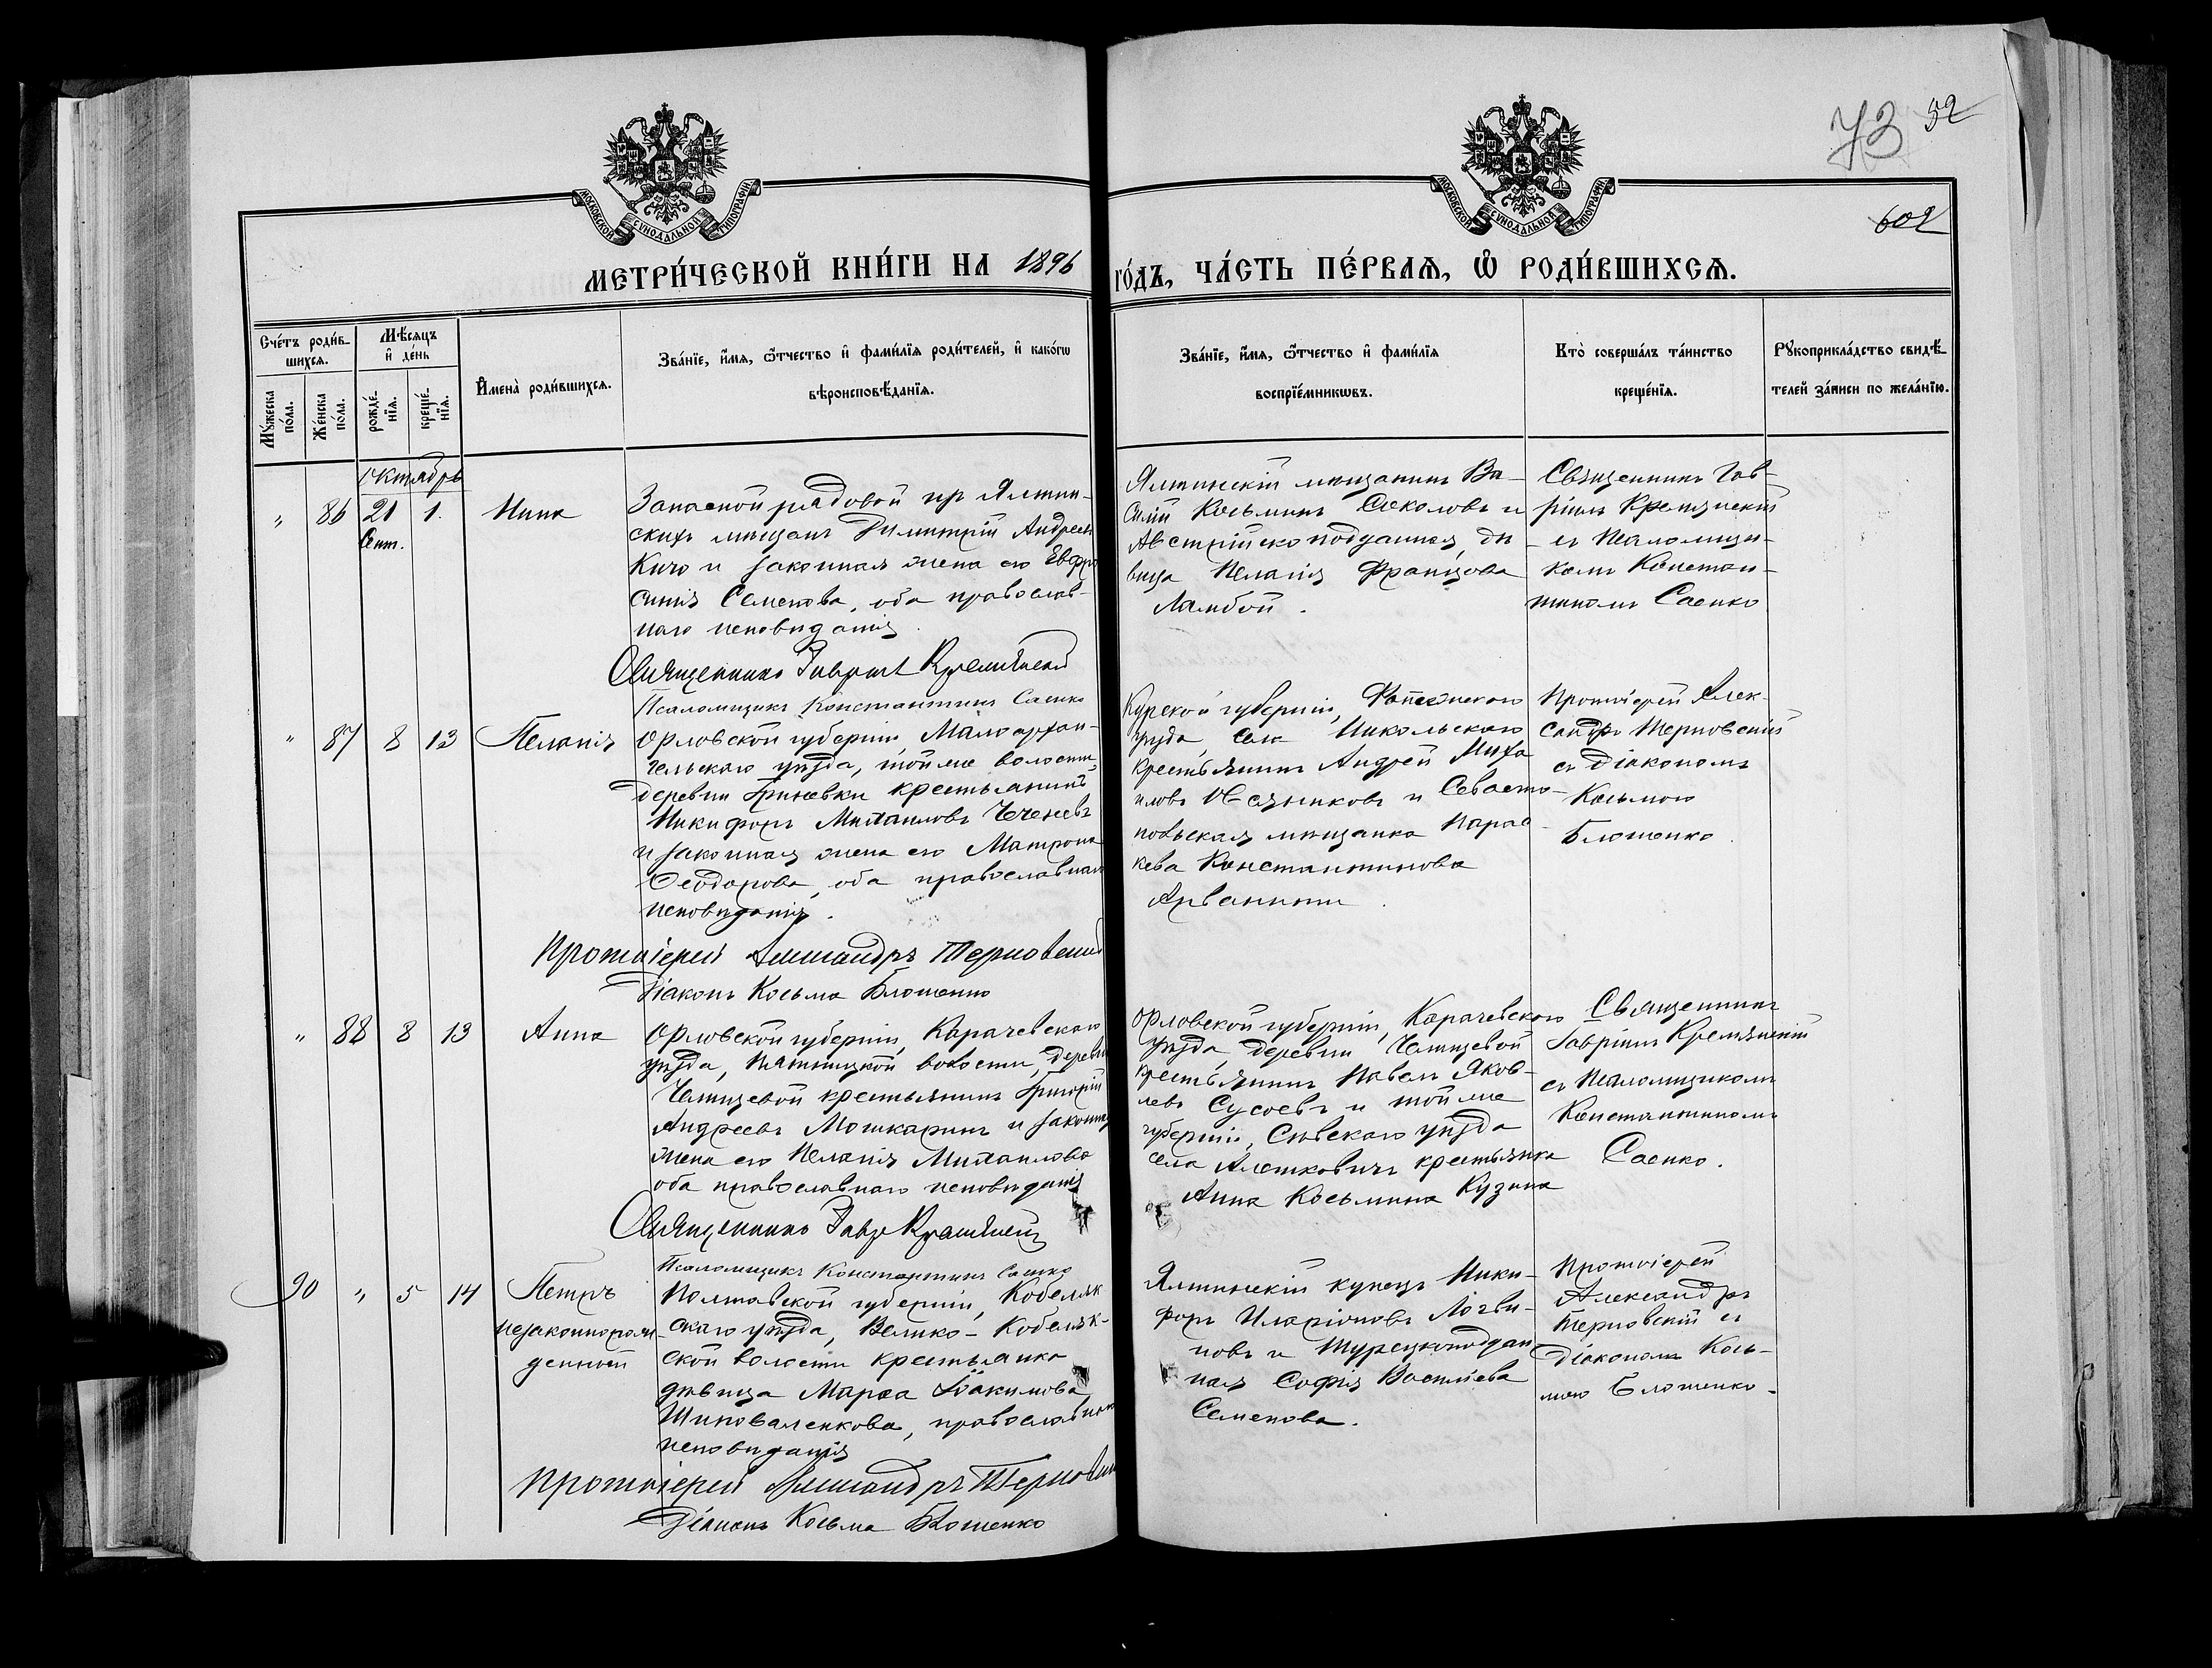 73 52
602
МОСКОВСКОЙ СУНОДАЛЬНОЙ ТИПОГРАФІИ
МОСКОВСКОЙ СУНОДАЛЬНОЙ ТИПОГРАФІИ
МЕТРИ́ЧЕСКОЙ КНИ́ГИ НА 1896 ГО́ДЪ, ЧА́СТЬ ПЕ́РВАѦ, Ѡ РОДИ́ВШИХСѦ.
Сче́тъ роди́в-
шихсѧ.
Мꙋ́жеска
по́ла.
Же́нска
по́ла.
Мѣ́сѧцъ
и де́нь
рожде́-
нїѧ.
креще́-
нїѧ.
Имена̀ роди́вшихсѧ.
Зва́нїе, и́мѧ, ѻ́тчество и фами́лїѧ роди́телей, и како́гѡ
вѣроисповѣ́данїѧ.
Зва́нїе, и́мѧ, ѻ́тчество и фами́лїѧ
воспрїе́мникѡвъ.
Кто̀ соверша́лъ та́инство
креще́нїѧ.
Рꙋкоприкла́дство свидѣ́-
телей за́писи по жела́нїю.
Октябрь
" 86 21 1.
Сент.
Нина
Запасной рядовой изъ Ялтин-
скихъ мѣщанъ Димитрій Андреевъ
Кичо и законная жена его Евфро
синія Семенова, оба православ-
наго исповѣданія
Священникъ Гавріилъ Кремянскій
Псаломщикъ Константинъ Саенко
Ялтинскій мѣщанинъ Ва-
силій Косьминъ Соколовъ и
Австрійскоподданная, дѣ-
вица Пелагія Францова
Ламбой.
Священникъ Гав-
ріилъ Кремянскій
съ Псаломщи-
комъ Констан-
тиномъ Саенко
" 87 8 13 Пелагія
Орловской губерніи, Малоархан-
гельскаго уѣзда, той же волости,
деревни Гриневки крестьянинъ
Никифоръ Михаиловъ
и законная жена его Матрона
Ѳеодорова, оба православнаго
исповѣданія.
Протоіерей Александръ Терновскій
Діаконъ Косьма Блошенко
Курской губерніи, Фатежскаго
уѣзда, села Никольскаго
крестьянинъ Андрей Миха
иловъ и Севасто-
польская мѣщанка Парас-
кева Константинова
Арванити.
Протоіерей Алек-
сандръ Терновскій
съ Діакономъ
Косьмою
Блошенко.
" 88 8 13 Анна
Орловской губерніи, Карачевскаго
уѣзда, Пятницкой волости, деревни
крестьянинъ Григорій
Андреевъ Мошкаринъ и законная
жена его Пелагія Михаилова
оба православнаго исповѣданія
Священникъ Гавр Кремянскій
Псаломщикъ Константинъ Саенко
Орловской губерніи, Карачевского
уѣзда, деревни
крестьянинъ Павелъ Яков-
левъ Сусоевъ и той же
губерніи, Сѣвскаго уѣзда
села Алешковичъ крестьянка
Анна Косьмина Кузина
Священникъ
Гавріилъ Кремянскій
съ Псаломщикомъ
Константиномъ
Саенко.
90 " 5 14 Петръ
незаконнорож-
денный
Полтавской губерніи, Кобеляк
скаго уѣзда, Велико-Кобеляк-
ской волости крестьянка
дѣвица Марѳа Іоакимова
Шиповаленкова, православнаго
исповѣданія
Протоіерей Александръ Терновскій
Діаконъ Косьма Блошенко
Ялтинскій купецъ Ники-
форъ Иларіоновъ Логви-
новъ и Турецкоподдан-
ная Софія Васильева
Семенова.
Протоіерей
Александръ
Терновскій съ
Діакономъ Кось-
мою Блошенко.